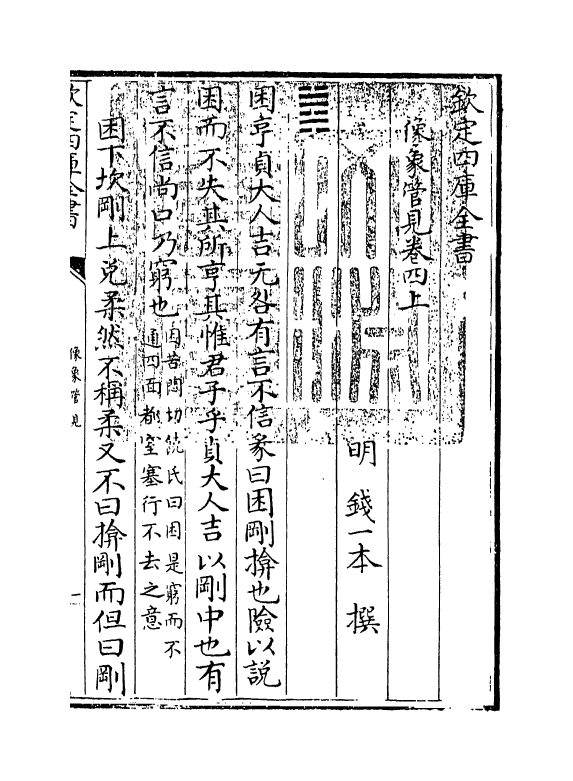 欽定四庫全書
像象管見卷四上
明 錢一本 撰
䷮
困亨貞大人吉无咎有言不信彖曰困剛揜也險以說
困而不失其所亨其惟君子乎貞大人吉以剛中也有
言不信尚口乃窮也困苦悶切饒氏曰困是窮而不
通四面都窒塞行不去之意
困下坎剛上兌柔然不稱柔又不曰揜剛而但曰剛
欽定四庫全書
像象管見
一